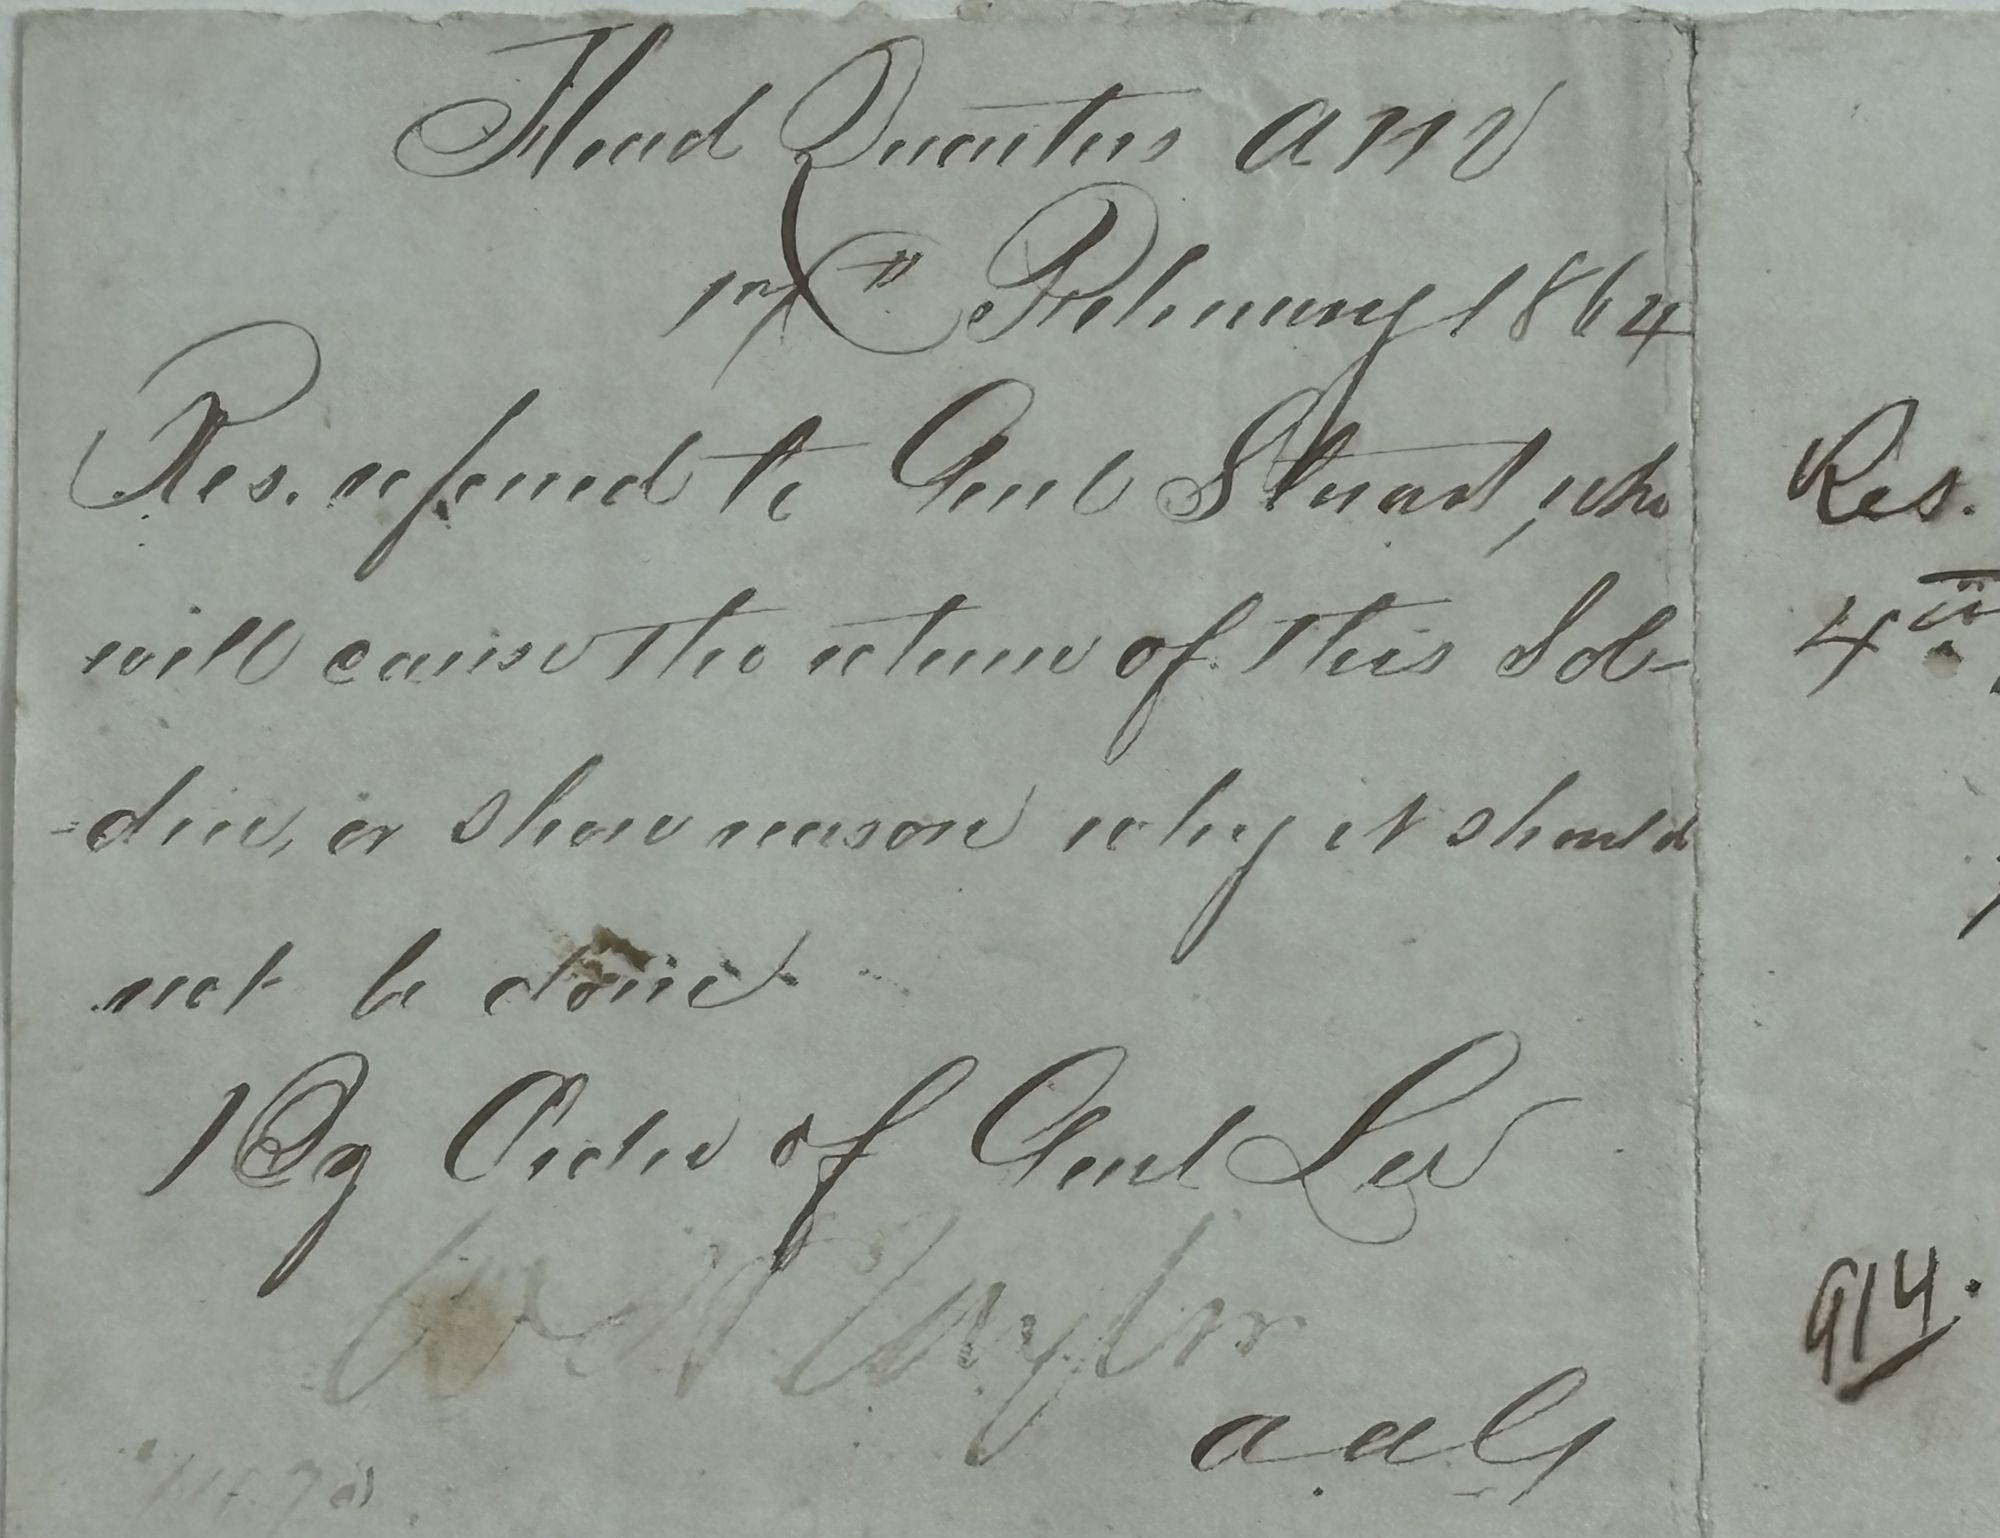 Head Quarters ANV
17th February 1864
Res. referred to Genl Stuart, who
will cause the return of this Sol-
-dier, or show reason why it should
not be done
By Order of Genl Lee
W H Taylor
AAG
Res.
4th
914.